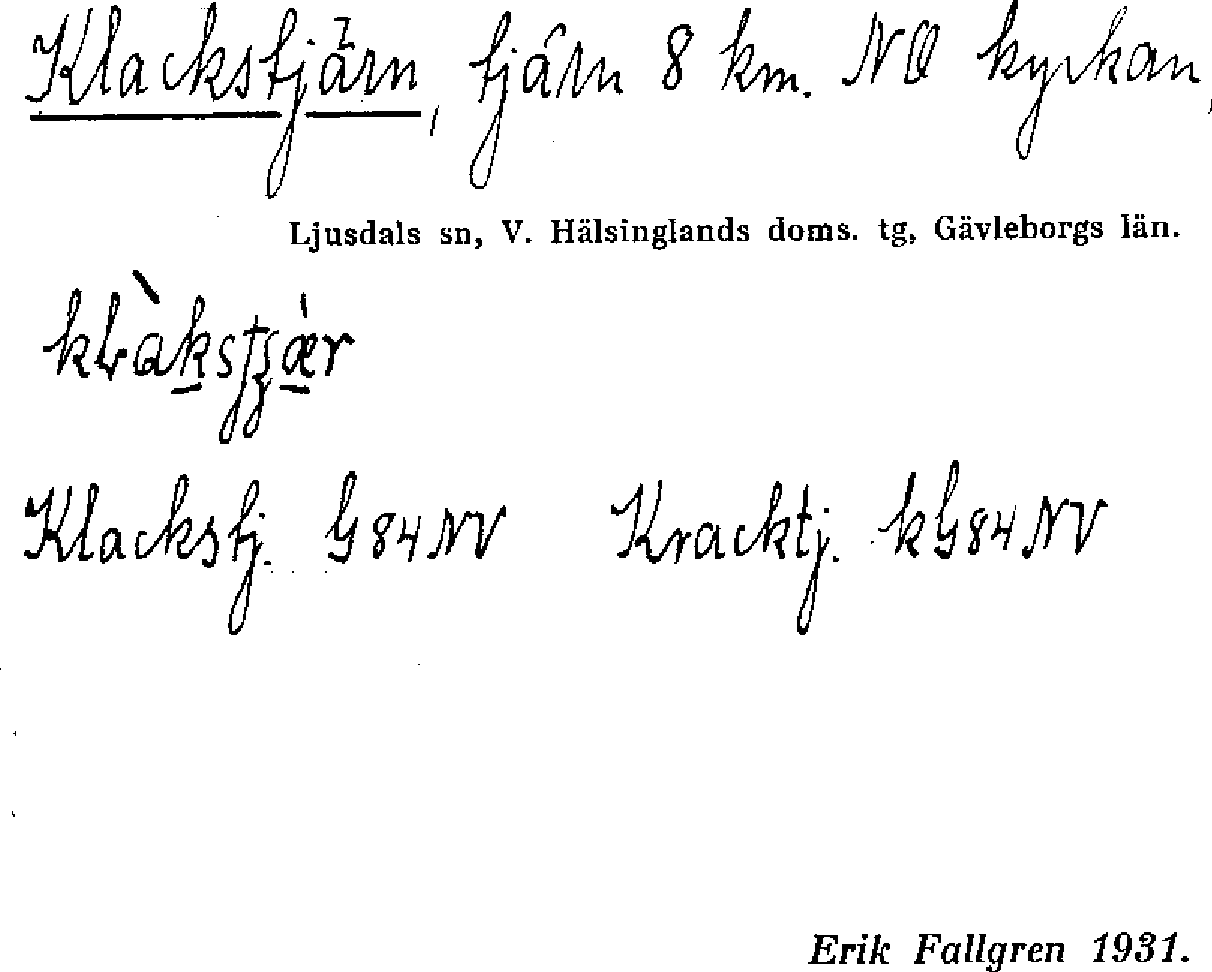 Klackstjärn, tjärn 8 km. NO kyrkan,
Ljusdals sn, V. Hälsinglands doms. tg, Gävleborgs län.
Klackstj. G84NV Kracktj. kG84NV
Erik Fallgren 1931.